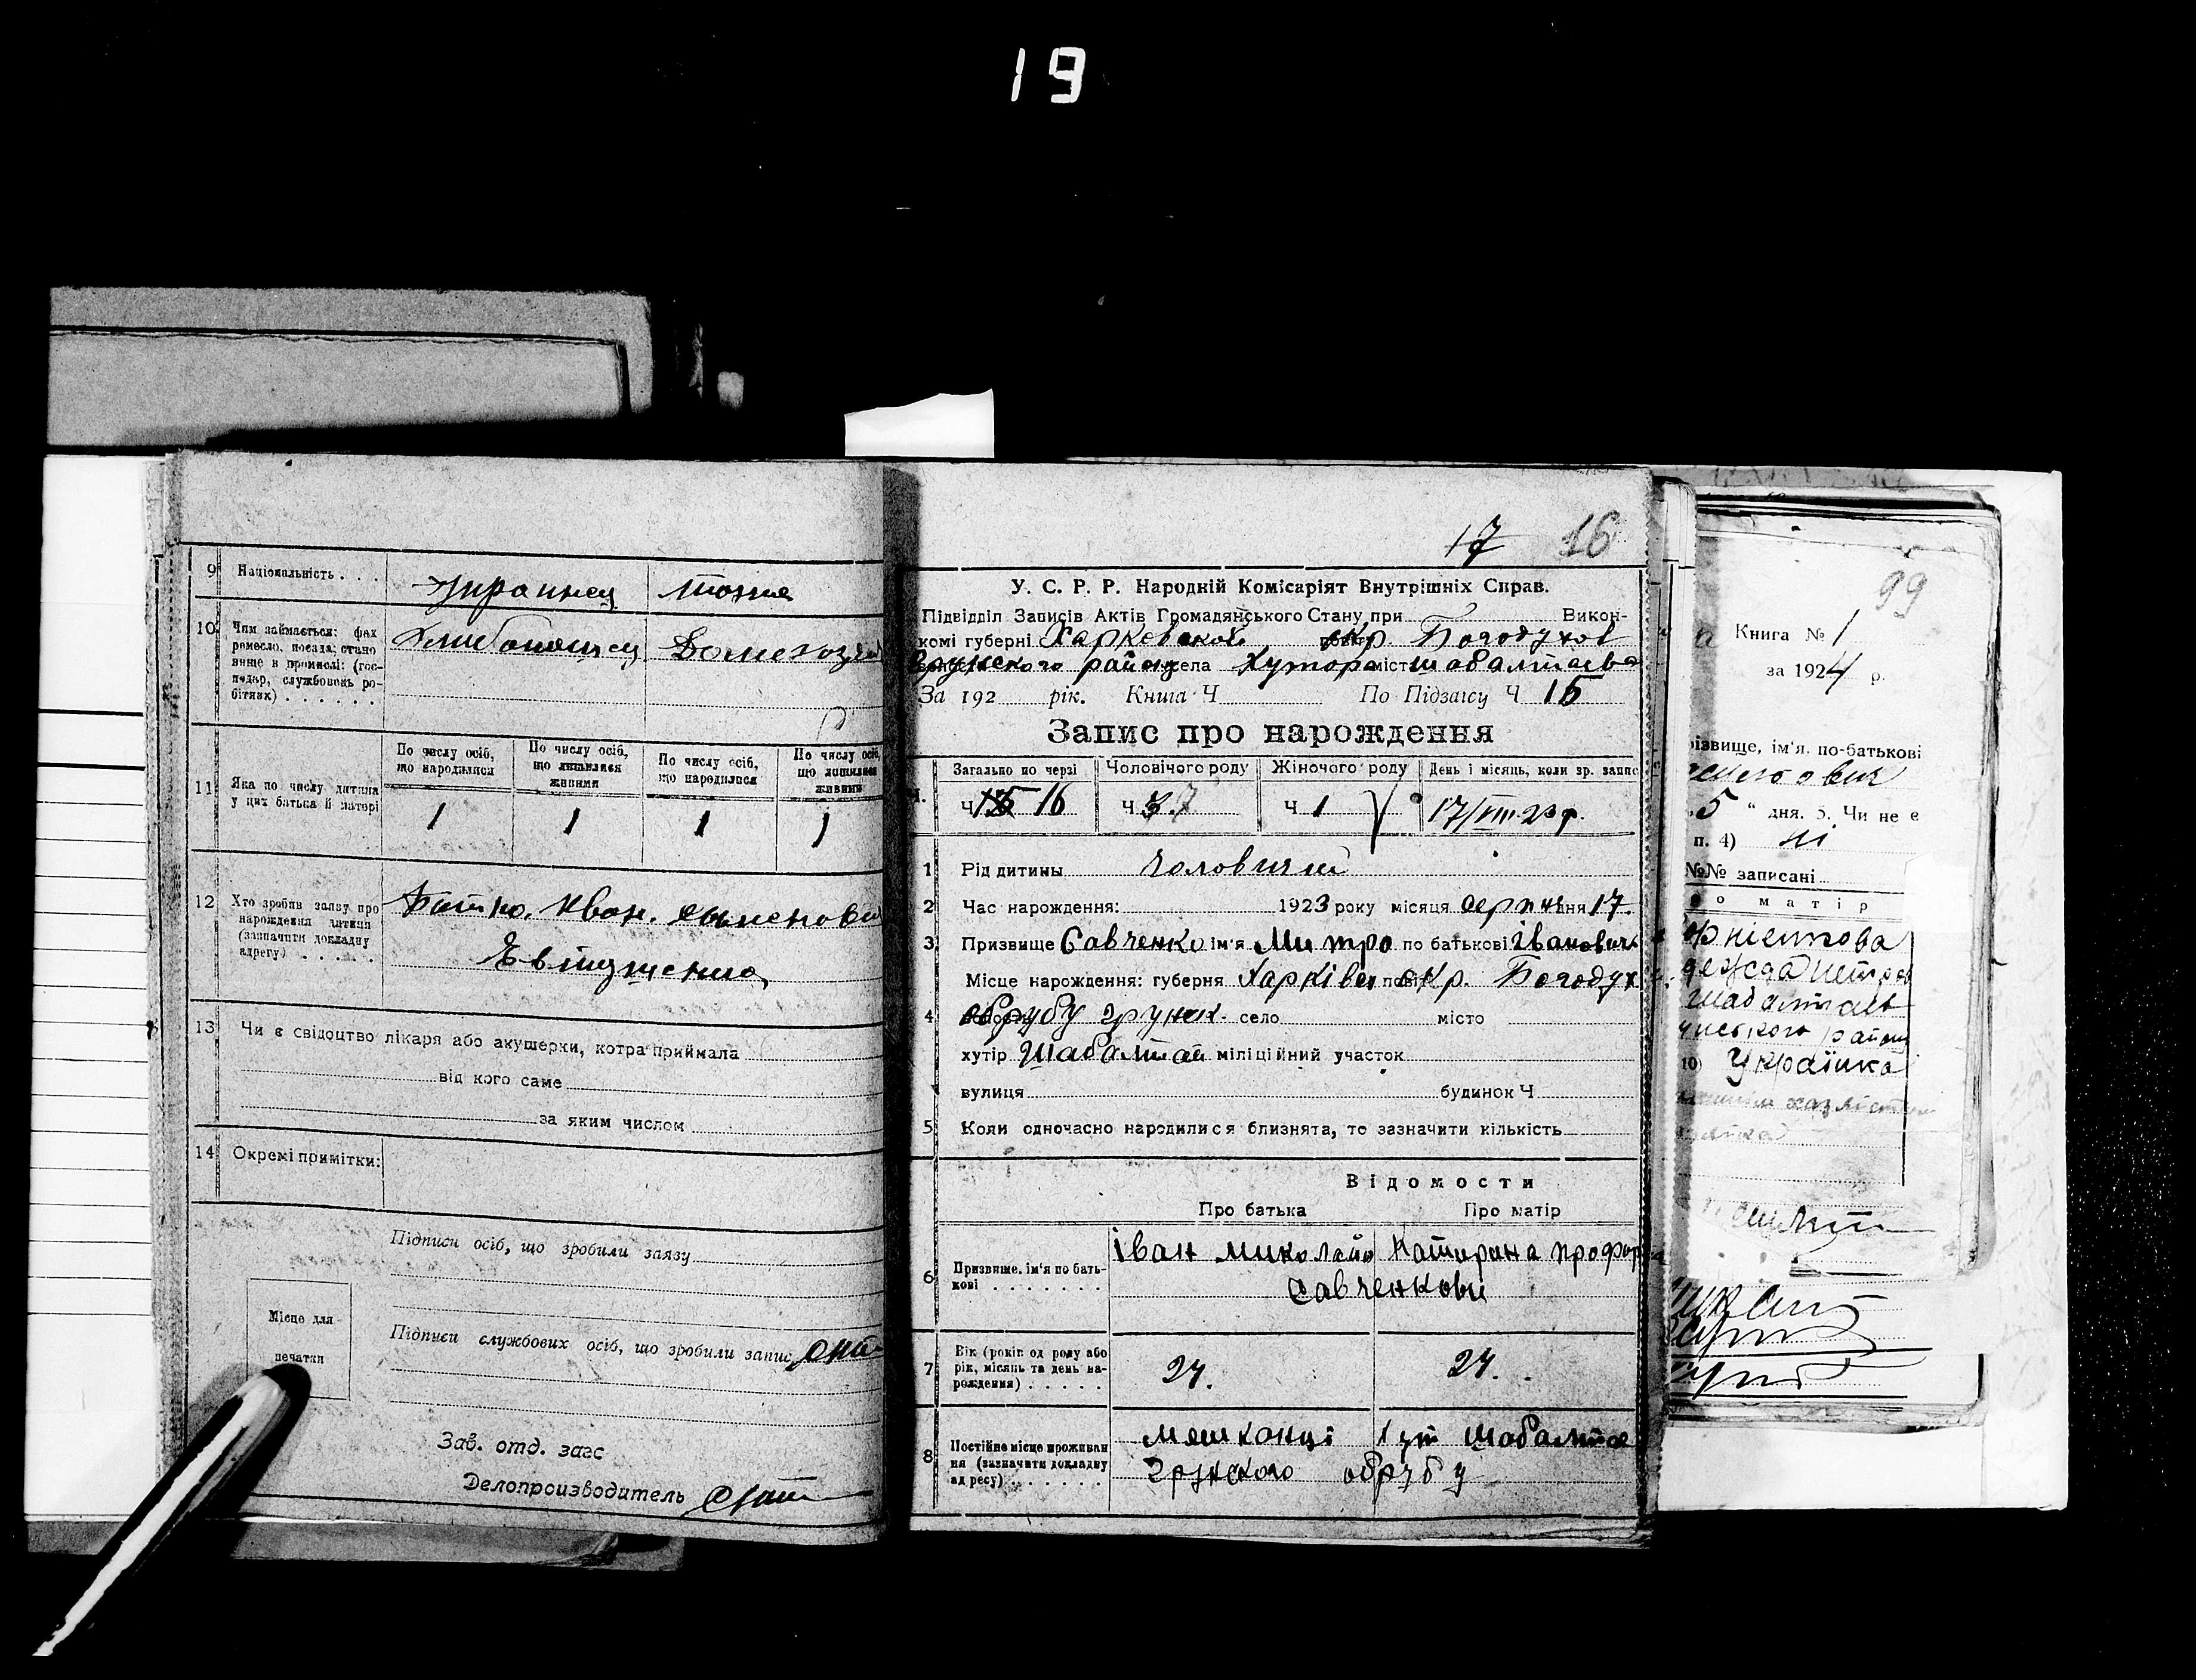 19
9 Національність . . . Украинец тоже
10 Чим займається: фах
ремесло, посада, стано
вище в промислі: (гос-
подар, службовець ро-
бітник) . . . . . .
Хлибопашец Домохоз
11 Яка по числу дитина
у цих батька й матері
По числу осіб,
що народилися
По числу осіб,
що лишилися
живими
По числу осіб,
що народилися
По числу осіб,
що лишилися
живими
1 1 1 1
12 Хто зробив заяву про
нарождення дитини
(зазначити докладну
адресу) . . . . .
Батько. Иван.
13 Чи є свідоцтво лікаря або акушерки, котра приймала
від кого саме
за яким числом
14 Окремі примітки:
Підписи осіб, що зробили заяву
Місце для
печатки
Підписи службових осіб, що зробили запис
Зав. отд. загс
Делопроизводитель
17 16
У. С. Р. Р. Народній Комісаріят Внутрішніх Справ.
Підвідділ Записів Актів Громадянського Стану при Викон-
комі губерні Харковской окр. Богодухов
району села Хутора міст Шабалтаева
За 192 рік. Книга Ч По Підзагсу Ч 15
Запис про нарождення
Загально по черзі Чоловічого роду Жіночого роду День і місяць, коли зр. запис
Ч 15 16 Ч 7 Ч 1 17/VIII 23 р.
1 Рід дитини Чоловичий
2 Час нарождення: 1923 року місяця серпня дня 17.
3 Призвище Савченко ім'я Митро по батькові Іванович
Місце нарождення: губерня Харківск окр. Богодух
4 обрубу грунск. село місто
хутір Шабалтай міліційний участок
вулиця будинок Ч
5 Коли одночасно народилися близнята, то зазначити кількість
Відомости
Про батька Про матір
6 Призвище, ім'я по бать-
кові . . . . . . .
Іван Миколайо Катирана
Савченкови
7 Вік (років од роду або
рік, місяць та день на-
рождення) . . . . .
24. 24.
8 Постійне місце проживан
ня (зазначити докладну
адресу) . . . . . .
Мешканці хут Шабалтае
грунского обрубу
99
Книга № 1
за 1924 р.
різвище, ім'я, по-батькові
5 " дня. 5. Чи не є
п. 4) ні
№№ записані
о матір
Шабалтаев
району
10) Українка